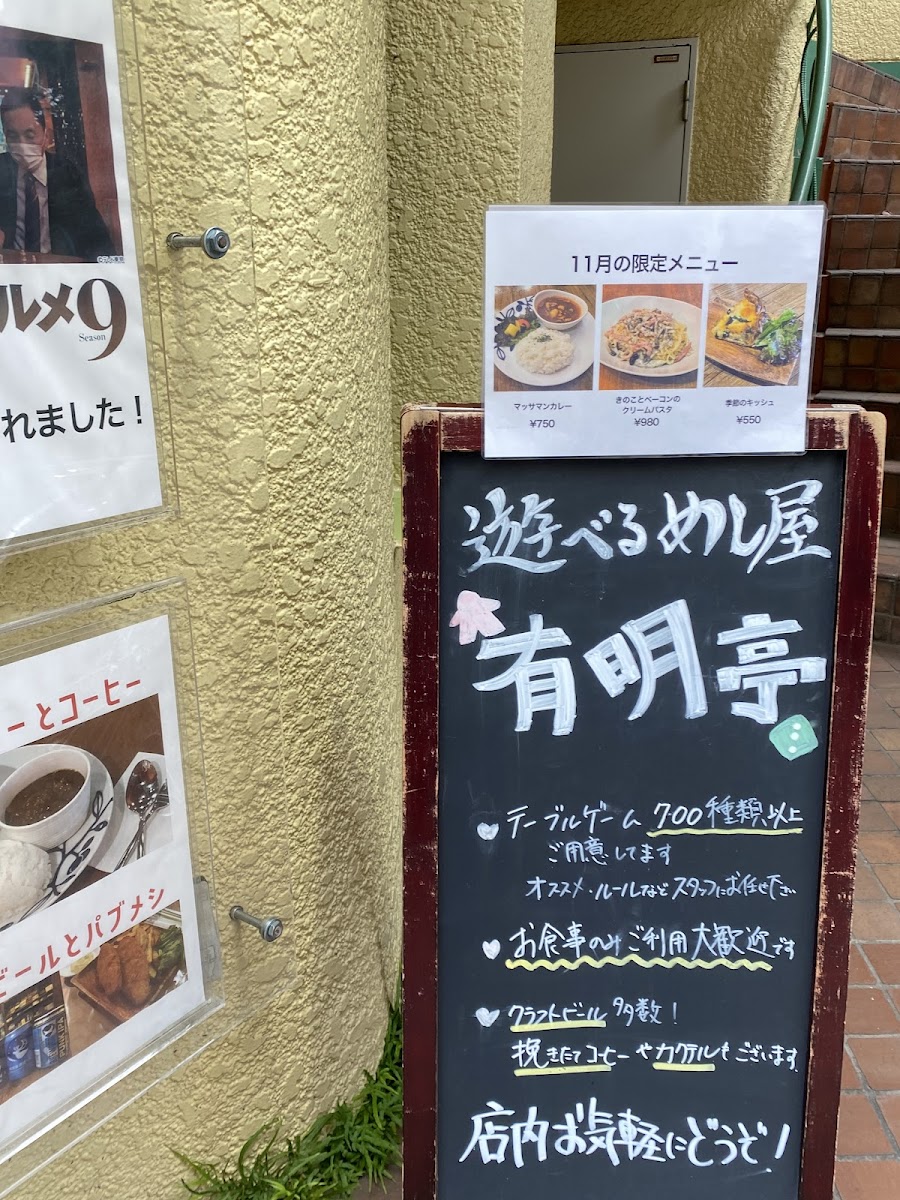 ルメ9
Season
れました！
ーとコーヒー
ビールとパブメシ
11月の限定メニュー
マッサマンカレー
¥750
きのことベーコンの
クリームパスタ
¥980
季節のキッシュ
¥550
遊べるめし屋
有明亭
テーブルゲーム 700種類以上
ご用意してます
オススメ・ルールなど スタッフにお任せ下さい
お食事のみご利用大歓迎です
クラフトビール 多数！
挽きたてコーヒーやカクテルもございます
店内お気軽にどうぞ！